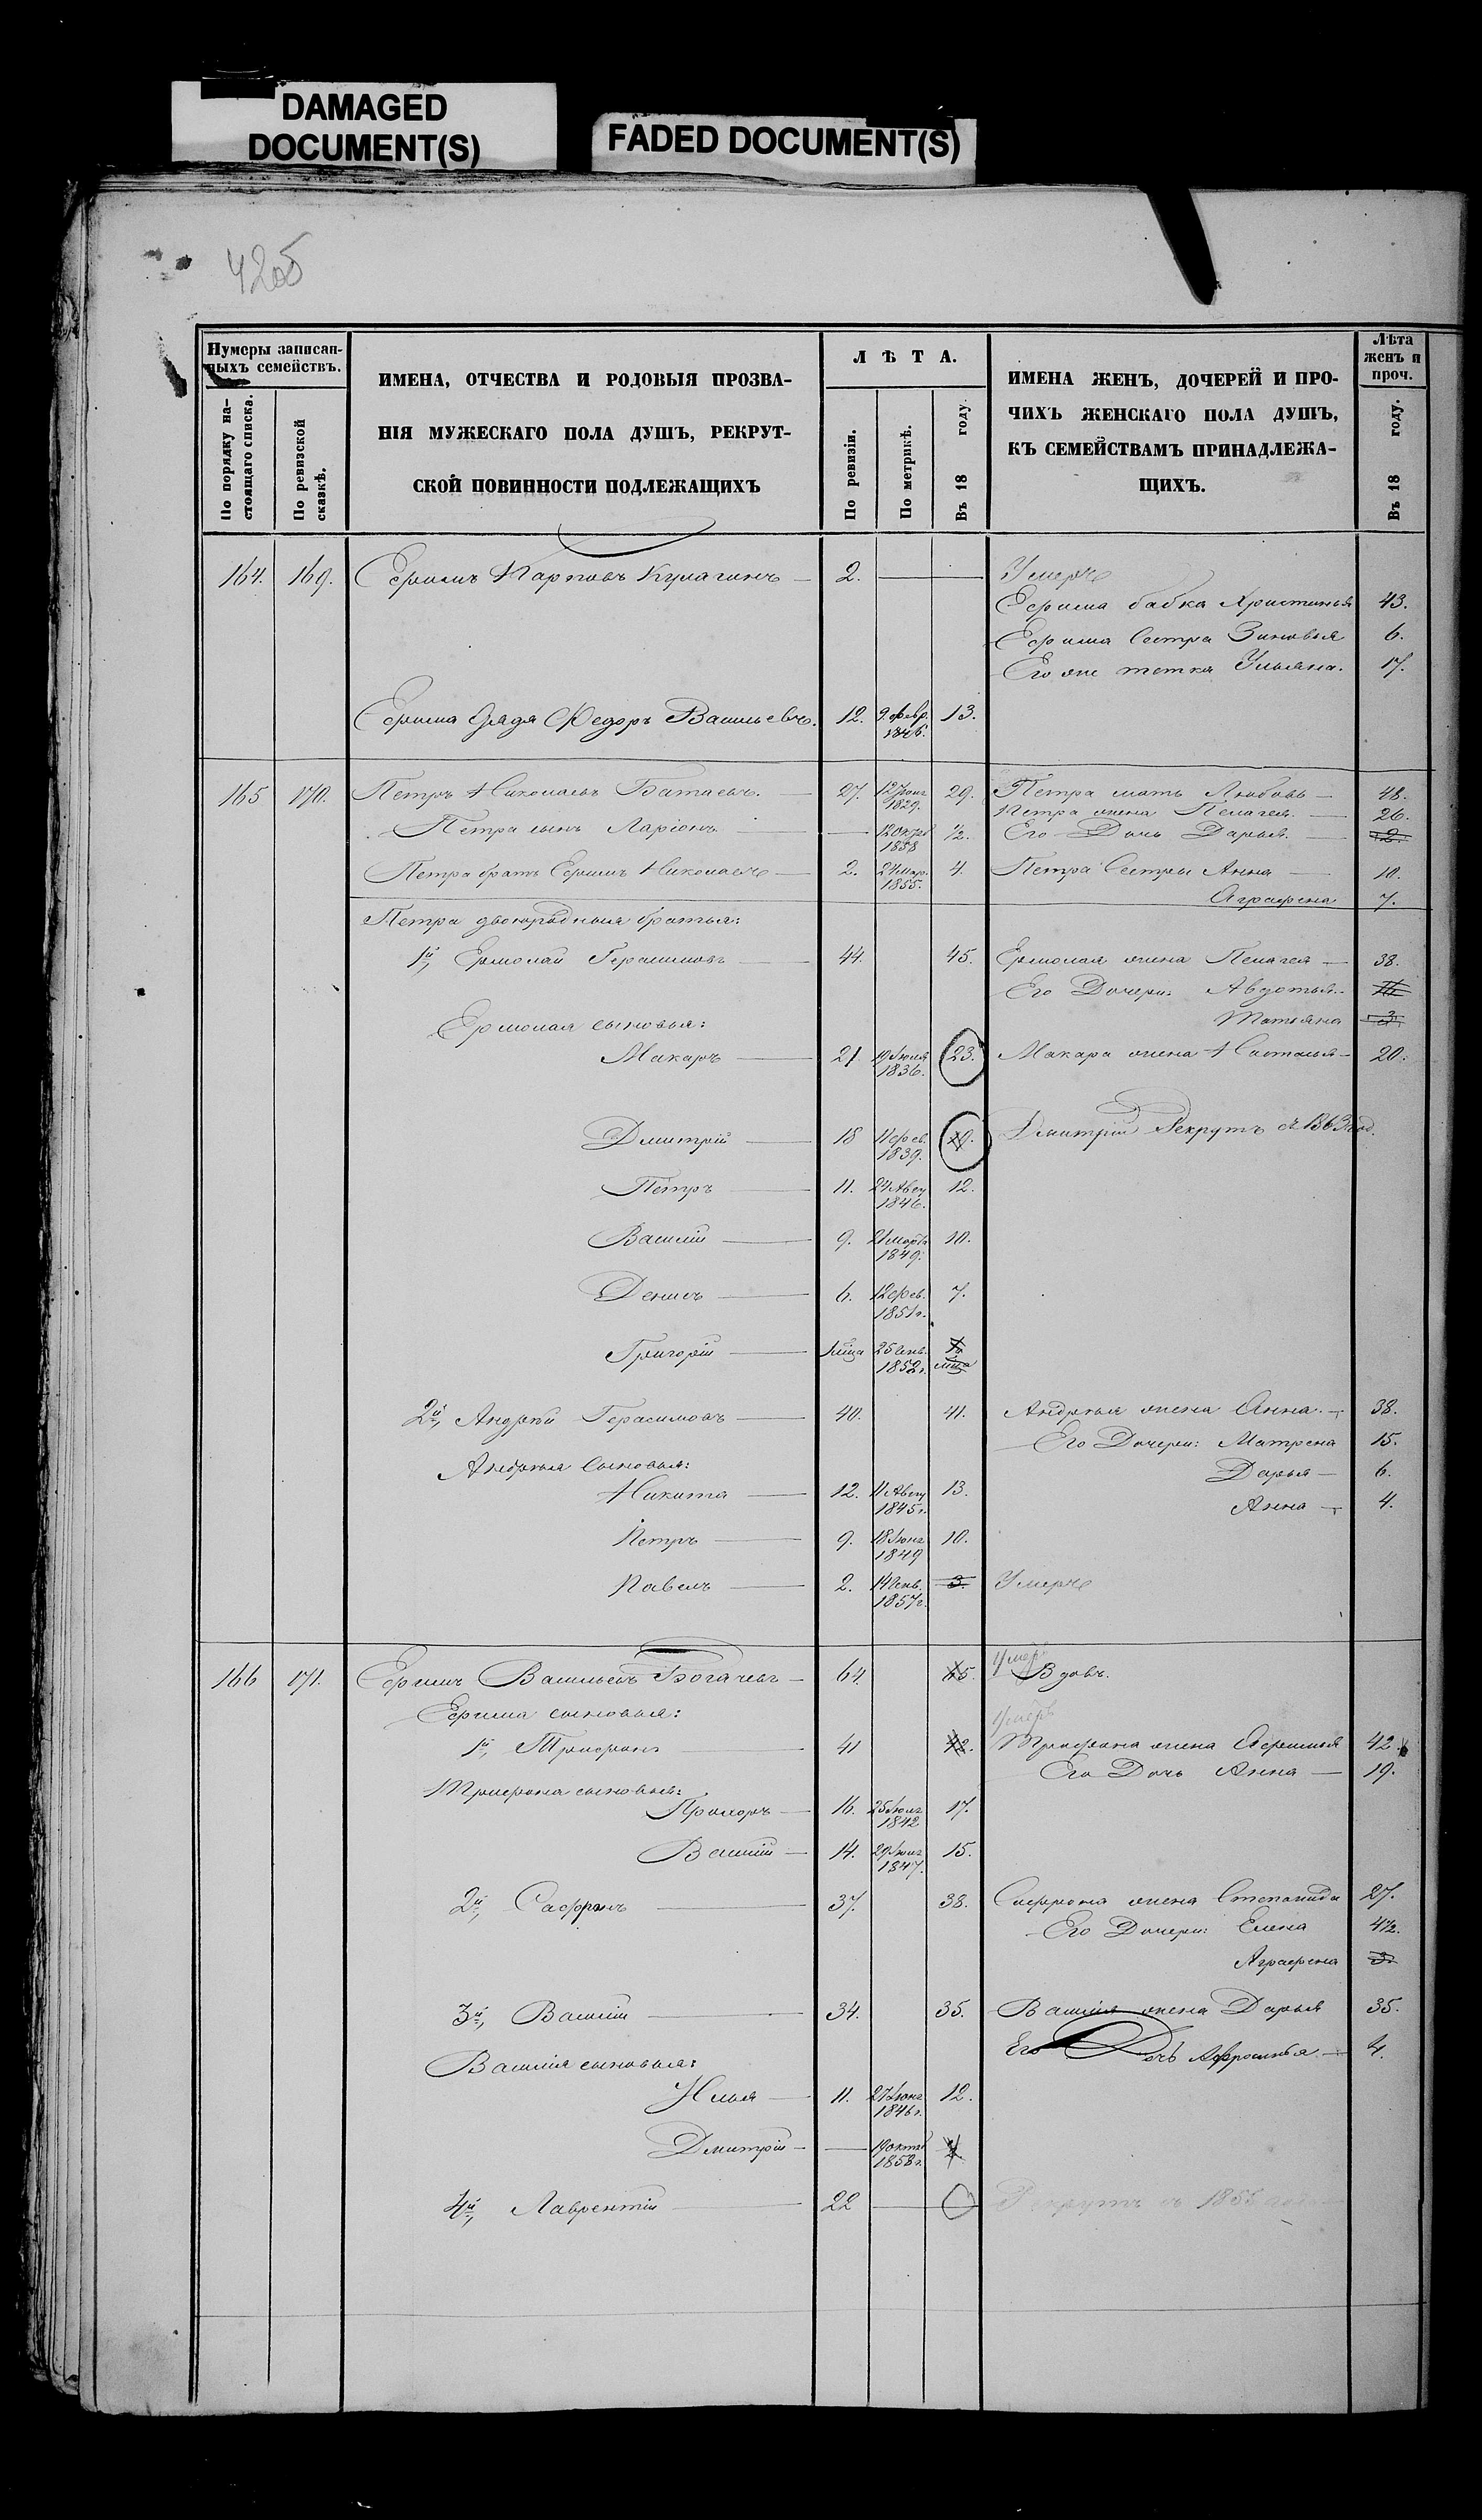 DAMAGED
DOCUMENT(S)
FADED DOCUMENT(S)
4205
Нумеры записан-
ныхъ семействъ.
По порядку на-
стоящаго списка.
По ревизской
сказкѣ.
ИМЕНА, ОТЧЕСТВА И РОДОВЫЯ ПРОЗВА-
НІЯ МУЖЕСКАГО ПОЛА ДУШЪ, РЕКРУТ-
СКОЙ ПОВИННОСТИ ПОДЛЕЖАЩИХЪ
ЛѢТА.
По ревизіи.
По метрикѣ.
Въ 18 году.
ИМЕНА ЖЕНЪ, ДОЧЕРЕЙ И ПРО-
ЧИХЪ ЖЕНСКАГО ПОЛА ДУШЪ,
КЪ СЕМЕЙСТВАМЪ ПРИНАДЛЕЖА-
ЩИХЪ.
Лѣта
женъ и
проч.
Въ 18 году.
164. 169. Ефимъ Карповъ Кулагинъ — 2. — Умеръ
Ефима бабка Христинья 43.
Ефима Сестра Зиновья 6.
Его же тетка Ульяна. 17.
Ефима Дядя Федоръ Васильевъ. 12. 9 февр. 1846. 13.
165 170. Петръ Николаевъ Батаевъ. — 27. 12 1829. 29. Петра мать Любовь — 48.
Петра жена Пелагея — 26.
Петра сынъ Ларіонъ — 12 окт 1858 1/2. Его Дочь Дарья — 2.
Петра братъ Ефимъ Николаевъ — 2. 24 мар. 1855. 4. Петра Сестры Анна — 10.
Аграфена 7.
Петра двоюродныя братья:
1й, Ермолай Герасимовъ — 44. 45. Ермолая жена Пелагея — 38.
Его Дочери: Авдотья —
Татьяна 3.
Ермолая сыновья:
Макаръ — 21 19 Июля 1836. 23. Макара жена Насталья — 20.
Дмитрій — 18 11 фев. 1839. 19. Дмитрій Рекрутъ съ 1863 год.
Петръ — 11. 24 Авгу 1846. 12.
Василій — 9. 21 марта 1849. 10.
Денисъ — 6. 12 фев. 1851 г. 7.
Григорій — 25 Генв. 1858 г.
2й, Андрей Герасимовъ — 40. 41. Андрея жена Анна — 38.
Его Дочери: Матрена 15.
Дарья — 6.
Анна — 4.
Андрея сыновья:
Никита — 12. 11 Авгу 1845 г. 13.
Петръ — 9. 18 Июня 1849 10.
Павелъ — 2. 14 Генв. 1857 г. 3. Умеръ
166 171. Ефимъ Васильевъ Богачевъ — 64. 65. Умеръ Вдовъ.
Ефима сыновья:
Умеръ
1й, Трифонъ — 41 42. Трифона жена Афимья 42.
Его Дочь Анна — 19.
Трифона сыновья:
Прохоръ — 16. 25 1842 17.
Василій — 14. 29 1847. 15.
2й, Сафронъ — 37. 38. Сафрона жена Степанида 27.
Его Дочери: Елена 4 1/2.
Аграфена 3.
3й, Василій — 34. 35. Василія жена Дарья 35.
Его Дочь Афросинья — 4.
Василія сыновья:
Илья — 11. 27 Июня 1846 г. 12.
Дмитрій — 19 октяб 1858 г.
4й, Лаврентій — 22 — Рекрутъ съ 1855